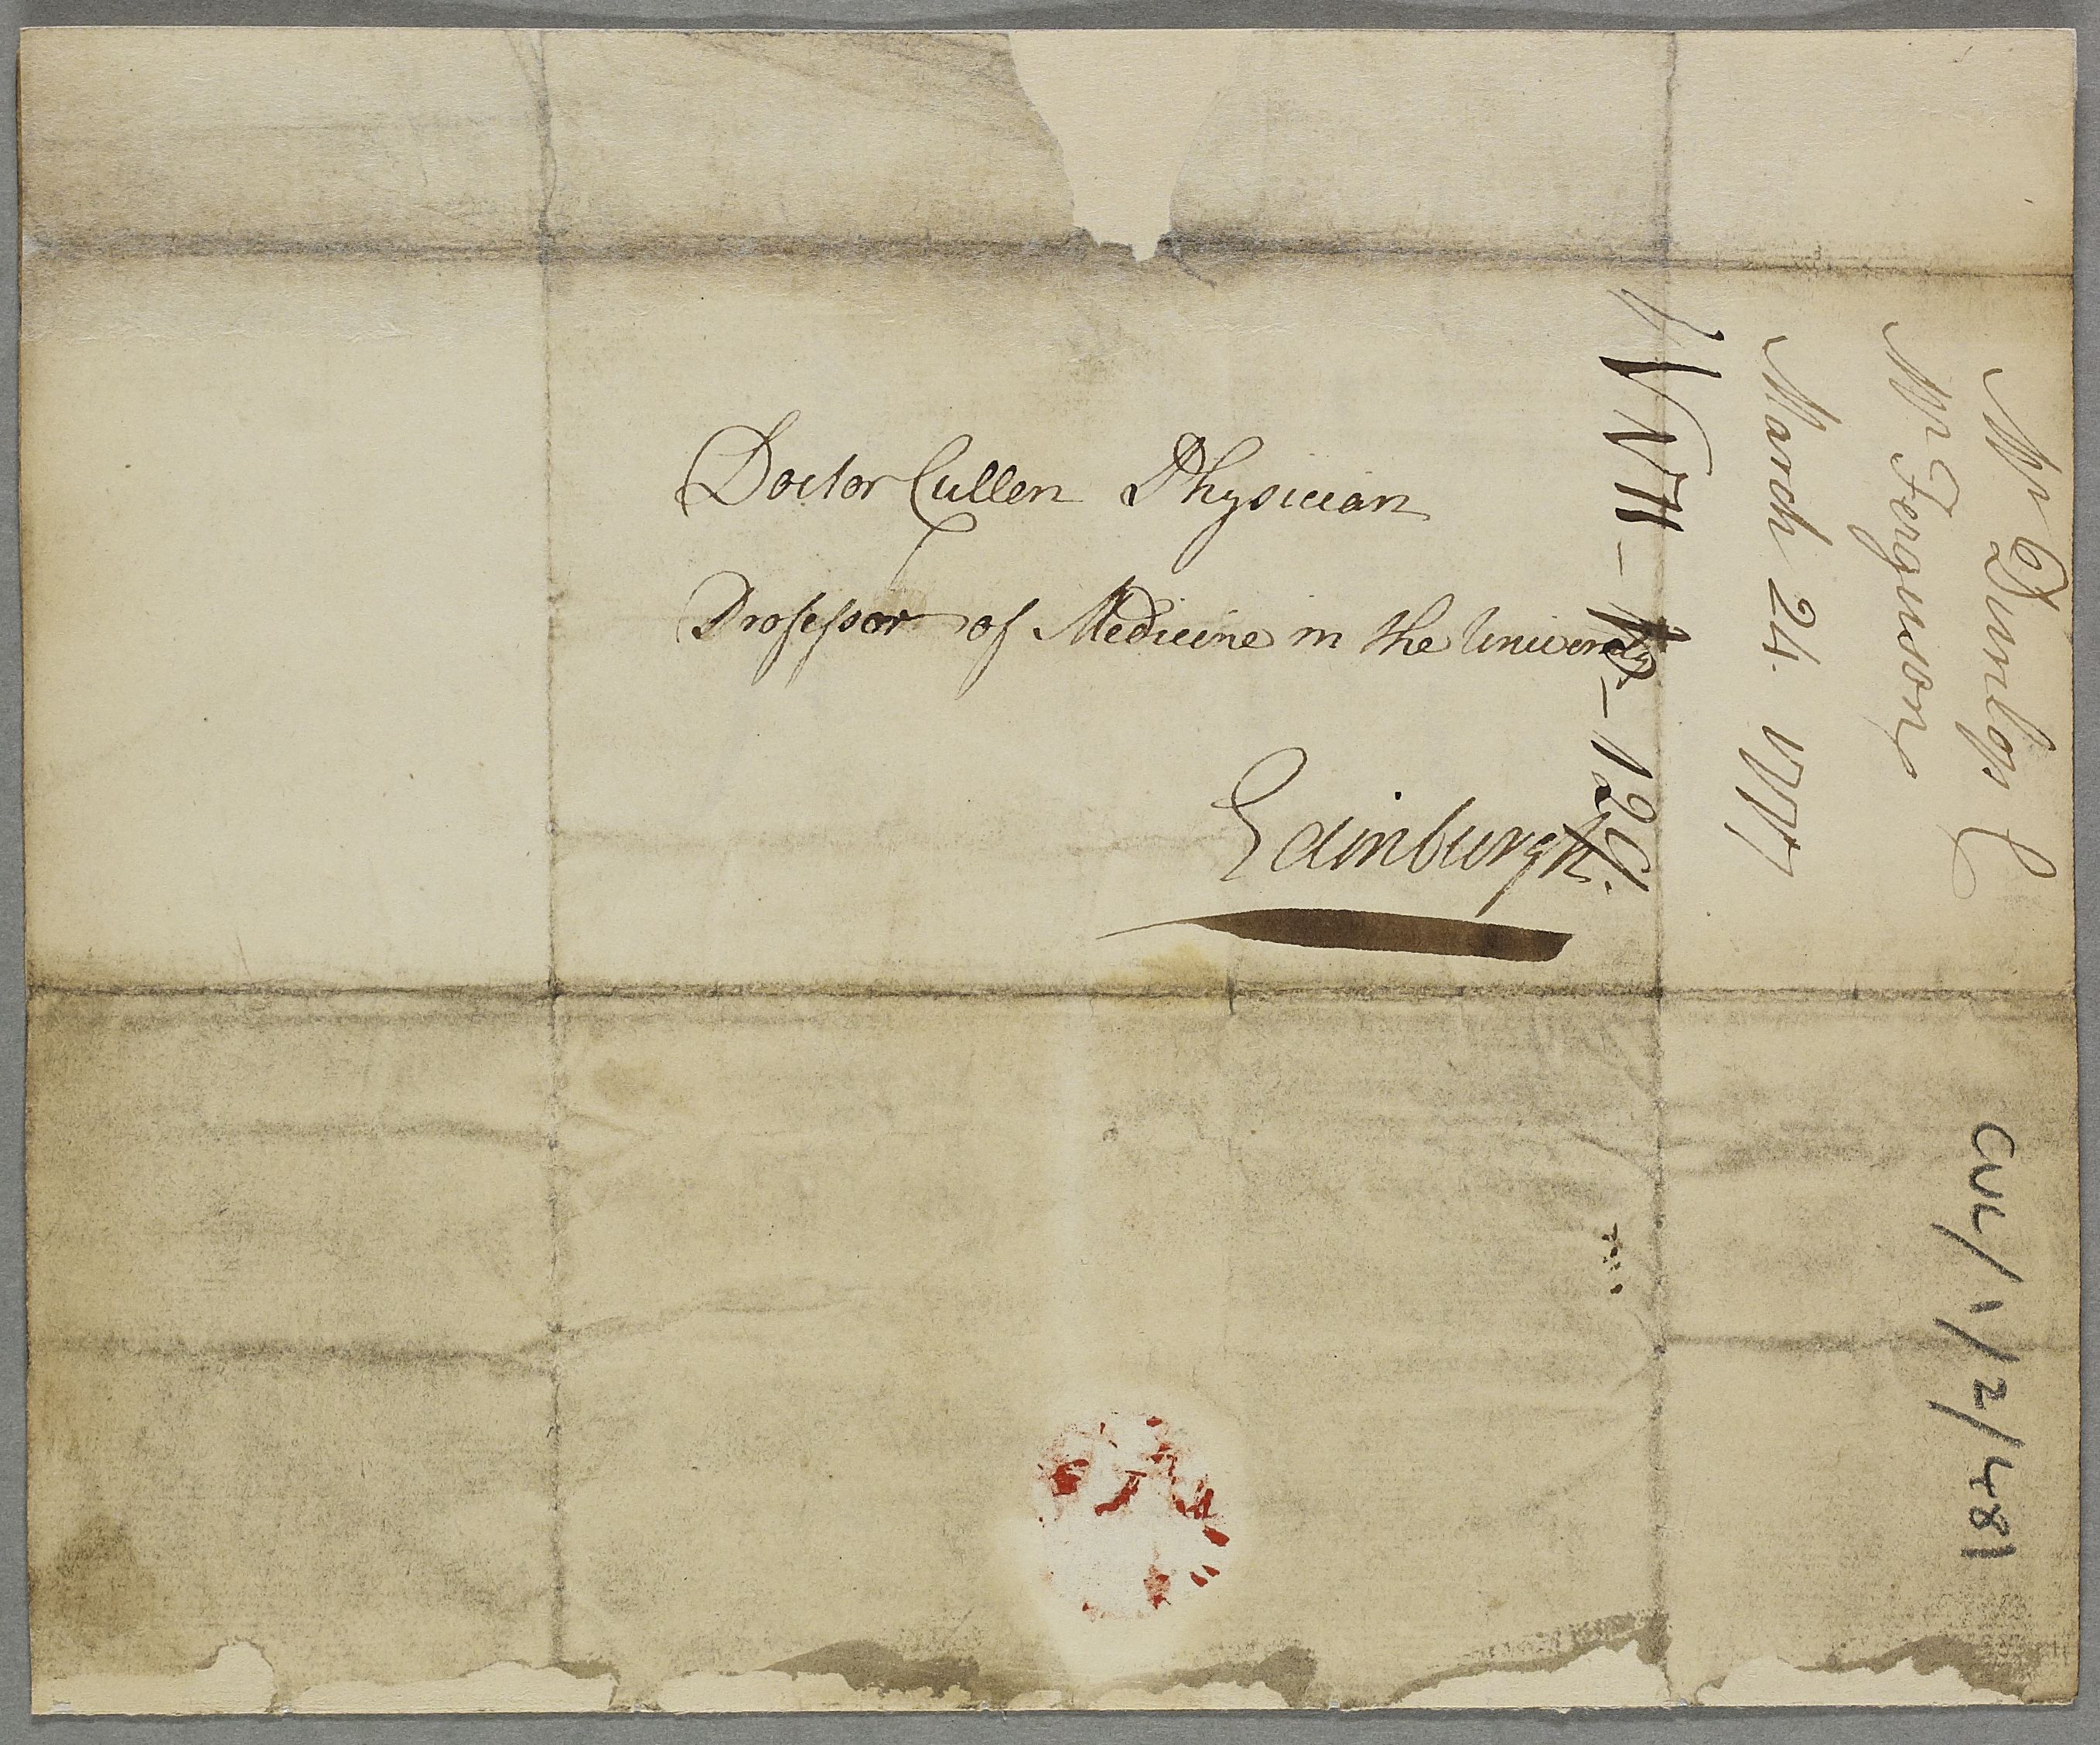 Doctor Cullen Physician
Professor of Medicine in the University
Edinburgh.
Mr Dunlop C
Mr Ferguson
March 24. 1777
CUL/1/2/481